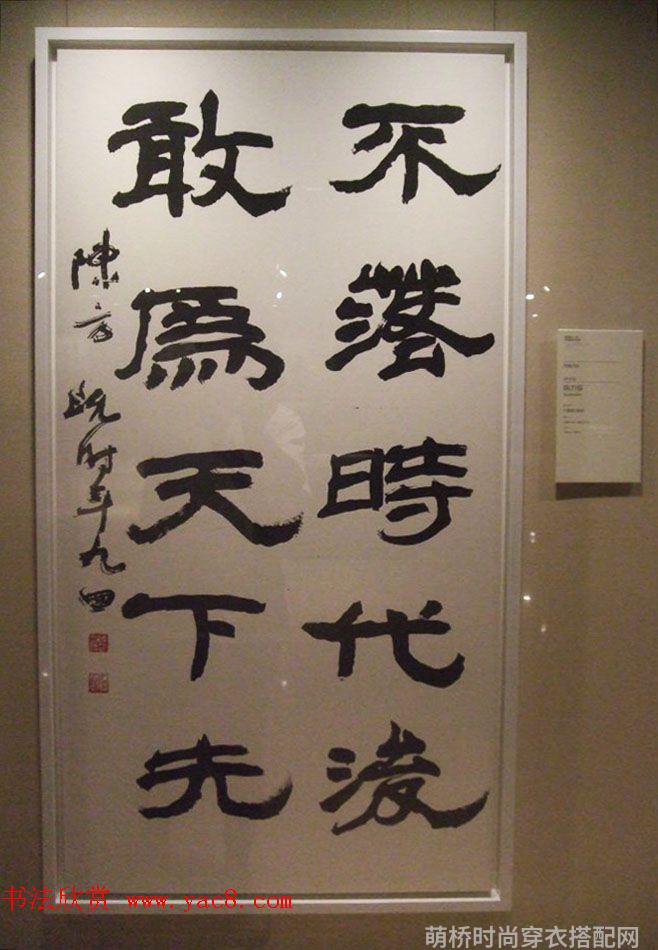 不落時代後
敢為天下先
陳方既时年九四
书法欣赏 www.yac8.com
萌桥时尚穿衣搭配网